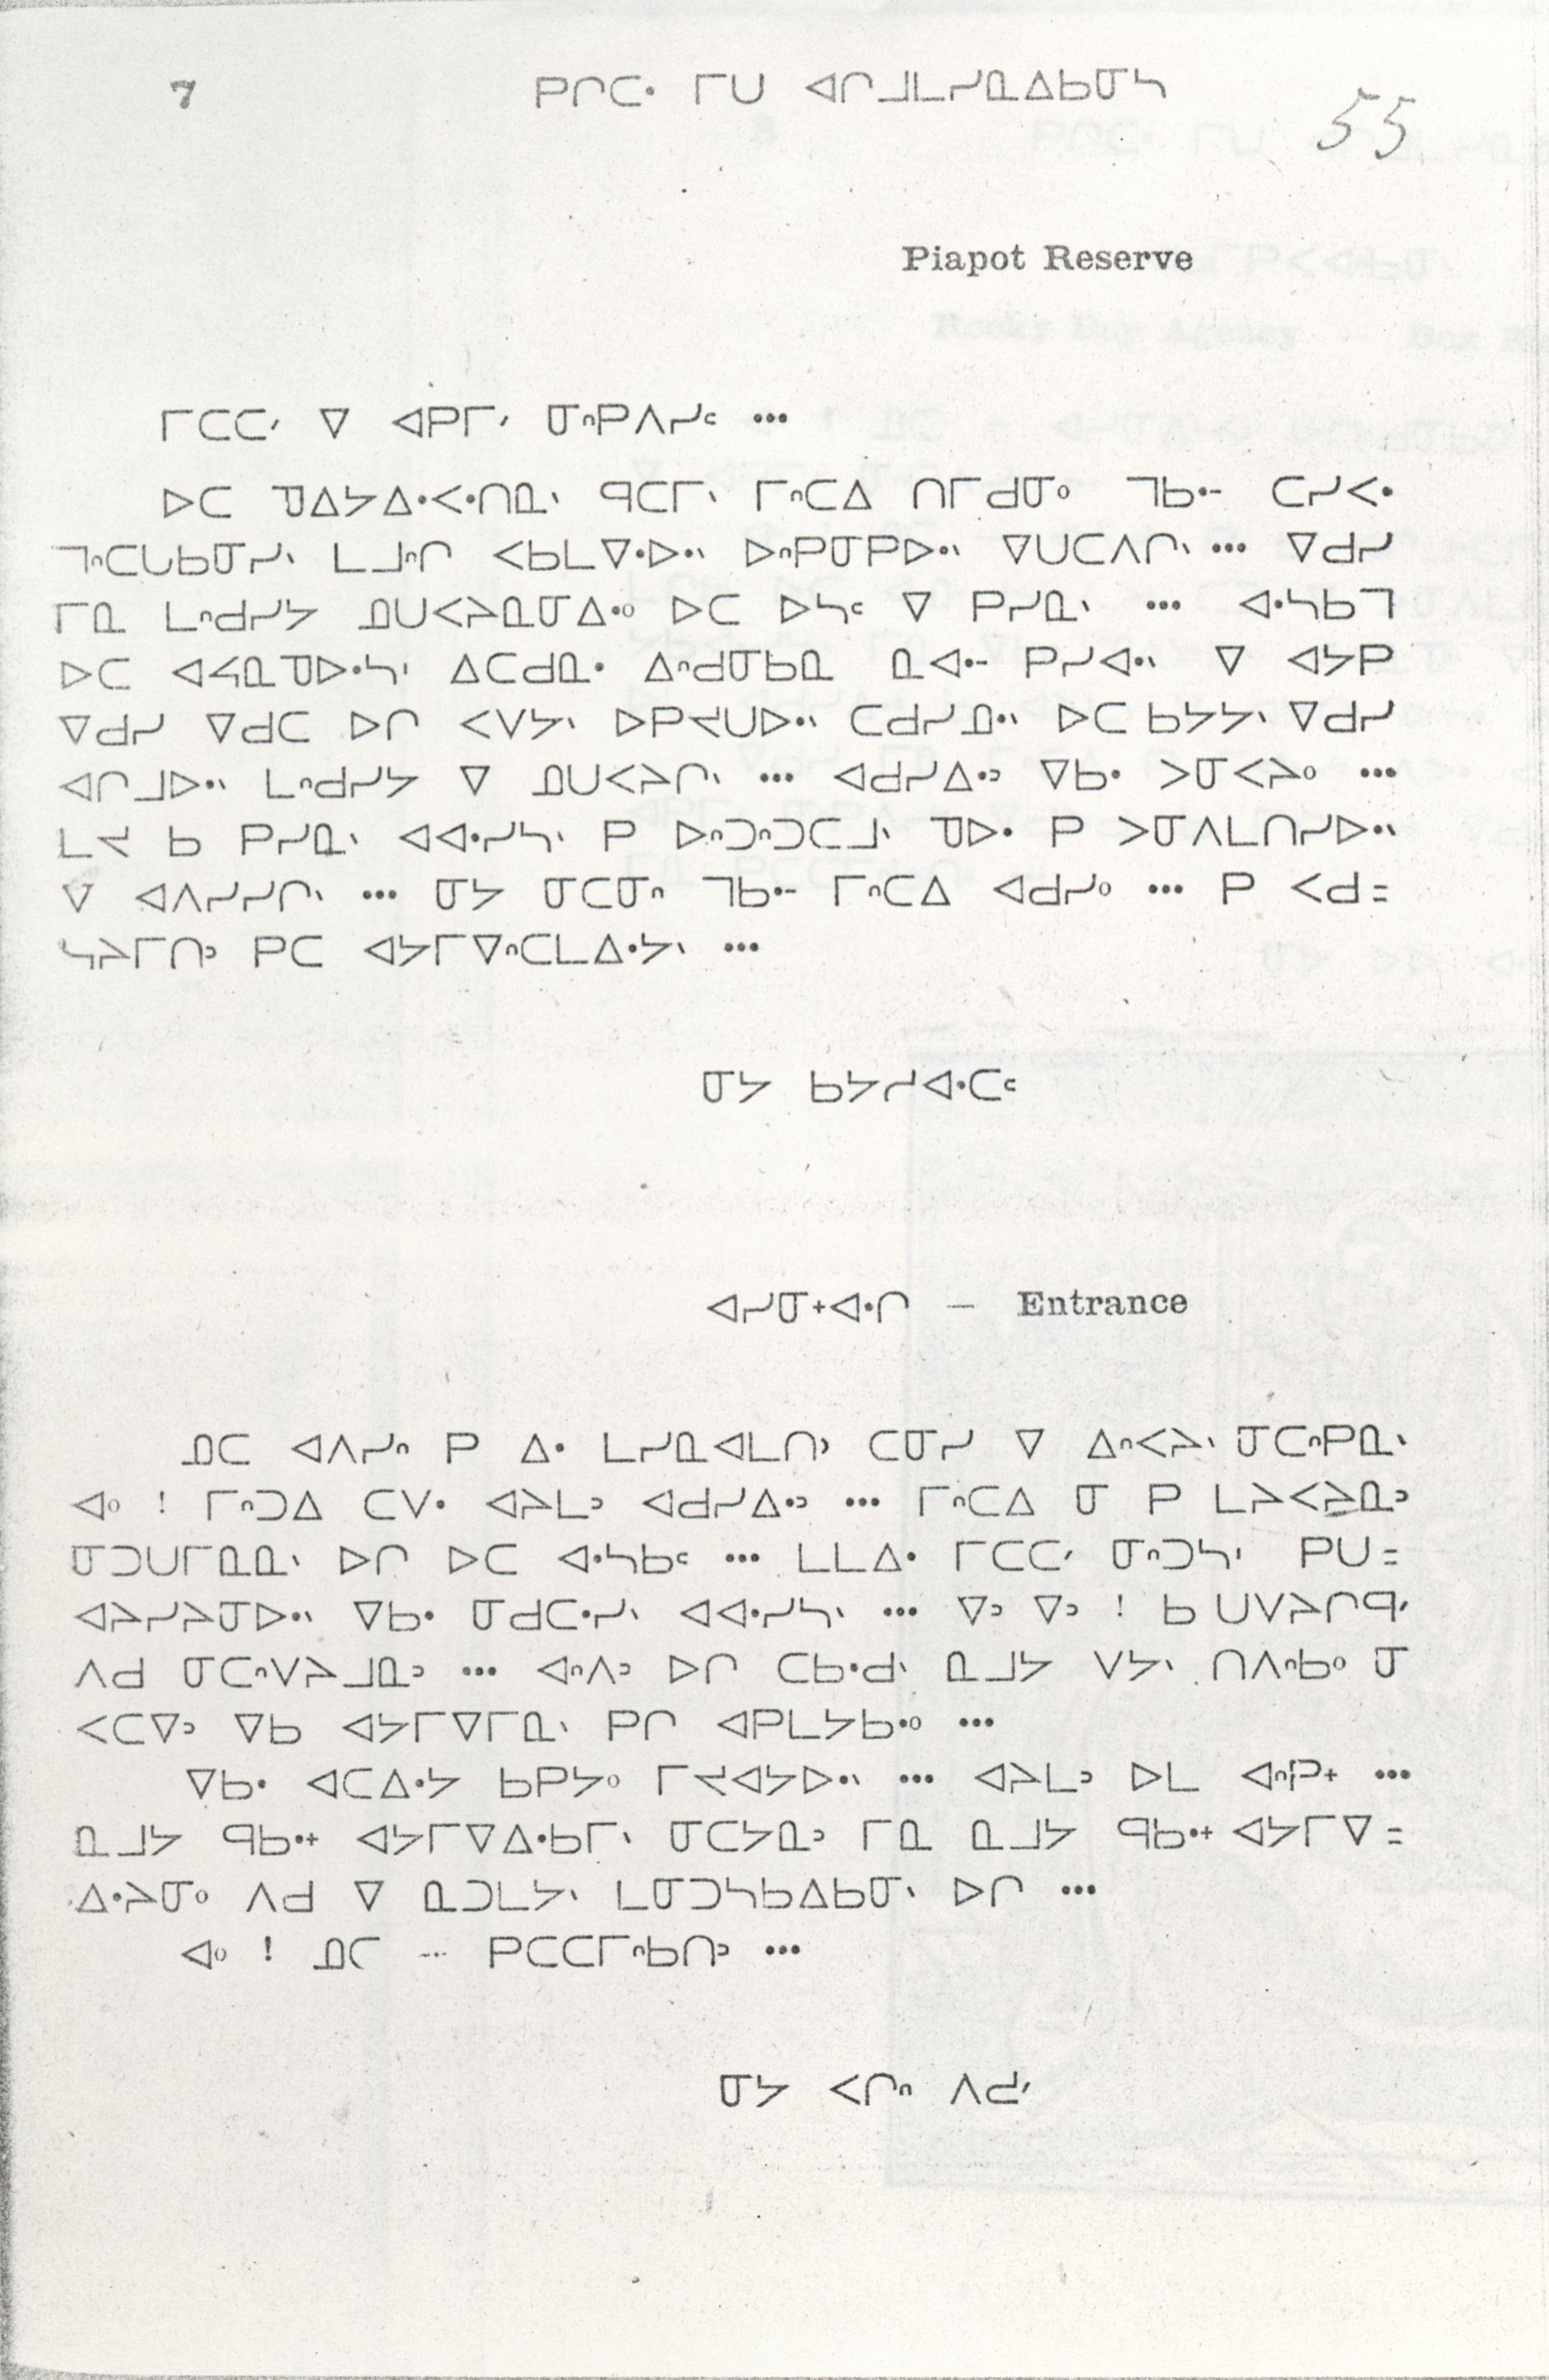 7 ᑭᒋᑕᐧ ᒥᑌ ᐊᒋᒧᒪᓯᓇᐃᑲᓂᓴ
55
Piapot Reserve
ᒥᑕᑕᐟ ᐁ ᐊᑭᒥᐟ ᓂᐢᑭᐱᓯᑦ ...
ᐅᑕ ᑫᐃᔭᐃᐧᐸᐧᑎᓇᐠ ᑫᑕᒥᐠ ᒥᐢᑕᐃ ᑎᒥᑯᓂᐤ ᒣᑲᐧᐨ ᑕᓯᐸᐧ
ᒣᐢᑕᑌᑲᓂᓯᐠ ᒪᒧᐢᒋ ᐸᑲᒪᐁᐧᐅᐧᐠ ᐅᐢᑭᓂᑭᐅᐧᐠ ᐁᑌᑕᐱᒋᐠ ... ᐁᑯᓯ
ᒥᓇ ᒪᐢᑯᓯᔭ ᓄᑌᐸᔨᓇᓂᐃᐧᐤ ᐅᑕ ᐅᓴᑦ ᐁ ᑭᓯᓇᐠ ... ᐊᐧᓴᑲᒣ
ᐅᑕ ᐊᔦᓇᑫᐅᐧᓴᐠ ᐃᑕᑯᓇᐧ ᐃᐢᑯᓂᑲᓇ ᓇᐊᐧᐨ ᑭᓯᐊᐧᐠ ᐁ ᐊᔭᑭ
ᐁᑯᓯ ᐁᑯᑕ ᐅᒋ ᐸᐯᔭᐠ ᐅᑭᔪᑌᐅᐧᐠ ᑕᑯᓯᓄᐧᐠ ᐅᑕ ᑲᔭᔭᐠ ᐁᑯᓯ
ᐊᒋᒧᐅᐧᐠ ᒪᐢᑯᓯᔭ ᐁ ᓄᑌᐸᔨᒋᐠ ... ᐊᑯᓯᐃᐧᐣ ᐁᑲᐧ ᐳᓂᐸᔨᐤ ...
ᒪᔪ ᑲ ᑭᓯᓇᐠ ᐊᐊᐧᓯᓴᐠ ᑭ ᐅᐢᑐᐢᑐᑕᒧᐠ ᑫᐅᐧ ᑭ ᐳᓂᐱᒪᑎᓯᐅᐧᐠ
ᐁ ᐊᐱᓯᓯᒋᐠ ... ᓂᔭ ᓂᑕᓂᐢ ᒣᑲᐧᐨ ᒥᐢᑕᐃ ᐊᑯᓯᐤ ... ᑭ ᐸᑯ =
ᓭᔨᒥᑎᐣ ᑭᑕ ᐊᔭᒥᐁᐢᑕᒪᐃᐧᔭᐠ ...
ᓂᔭ ᑲᔭᓯᐊᐧᑕᑦ
ᐊᓯᓂᐩᐊᐧᒋ — Entrance
ᓄᑕ ᐊᐱᓯᐢ ᑭ ᐃᐧ ᒪᓯᓇᐊᒪᑎᐣ ᑕᓂᓯ ᐁ ᐃᐢᐸᔨᐠ ᓂᑕᐢᑭᓇᐠ
ᐊᐤ ! ᒥᐢᑐᐃ ᑕᐯᐧ ᐊᔨᒪᐣ ᐊᑯᓯᐃᐧᐣ ... ᒥᐢᑕᐃ ᓂ ᑭ ᒪᔨᐸᔨᓇᐣ
ᓂᑐᑌᒥᓇᓇᐠ ᐅᒋ ᐅᑕ ᐊᐧᓴᑲᑦ ... ᒪᒪᐃᐧ ᒥᑕᑕᐟ ᓂᐢᑐᓴᐠ ᑭᑌ =
ᐊᔨᓯᔨᓂᐅᐧᐠ ᐁᑲᐧ ᓂᑯᑕᐧᓯᐠ ᐊᐊᐧᓯᓴᐠ ... ᐁᐣ ᐁᐣ ! ᑲ ᑌᐯᔨᒋᑫᐟ
ᐱᑯ ᓂᑕᐢᐯᔨᒧᓇᐣ ... ᐊᐢᐱᐣ ᐅᒋ ᑕᑲᐧᑯᐠ ᓇᒧᔭ ᐯᔭᐠ ᑎᐱᐢᑲᐤ ᓂ
ᐸᑕᐁᐣ ᐁᑲ ᐊᔭᒥᐁᒥᓇᐠ ᑭᒋ ᐊᑭᒪᔭᑲᐧᐤ ...
ᐁᑲᐧ ᐊᑕᐃᐧᔭ ᑲᑭᔭᐤ ᒥᔪᐊᔭᐅᐧᐠ ... ᐊᔨᒪᐣ ᐅᒪ ᐊᐢᑭᐩ ...
ᓇᒧᔭ ᑫᑲᐧᐩ ᐊᔭᒥᐁᐃᐧᑲᒥᐠ ᓂᑕᔭᓇᐣ ᒥᓇ ᓇᒧᔭ ᑫᑲᐧᐩ ᐊᔭᒥᐁ =
ᐃᐧᔨᓂᐤ ᐱᑯ ᐁ ᓇᑐᒪᔭᐠ ᒪᓂᑐᓴᑲᐃᑲᓂᐠ ᐅᒋ ...
ᐊᐤ ! ᓄᑕ -- ᑭᑕᑕᒥᐢᑲᑎᐣ ...
ᓂᔭ ᐸᒋᐢ ᐱᑯᐟ